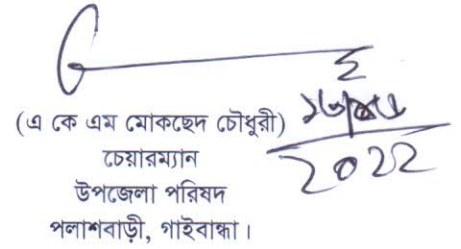 (এ কে এম মোকছেদ চৌধুরী)
চেয়ারম্যান
উপজেলা পরিষদ
পলাশবাড়ী, গাইবান্ধা।
2022